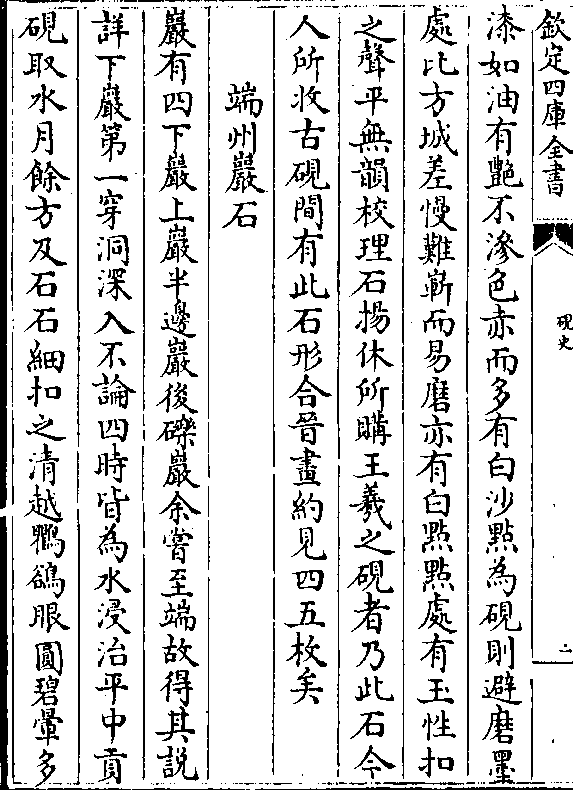 欽定四庫全書
硯史
二
漆如油有艶不滲色赤而多有白沙點為硯則避磨墨
處比方城差慢難嶄而易磨亦有白點點處有玉性扣
之聲平無韻校理石揚休所購王羲之硯者乃此石今
人所收古硯間有此石形合晉畫約見四五枚矣
端州巖石
巖有四下巖上巖半邊巖後礫巖余嘗至端故得其説
詳下巖第一穿洞深入不論四時皆為水浸治平中貢
硯取水月餘方及石石細扣之清越鸜鵒眼圓碧暈多